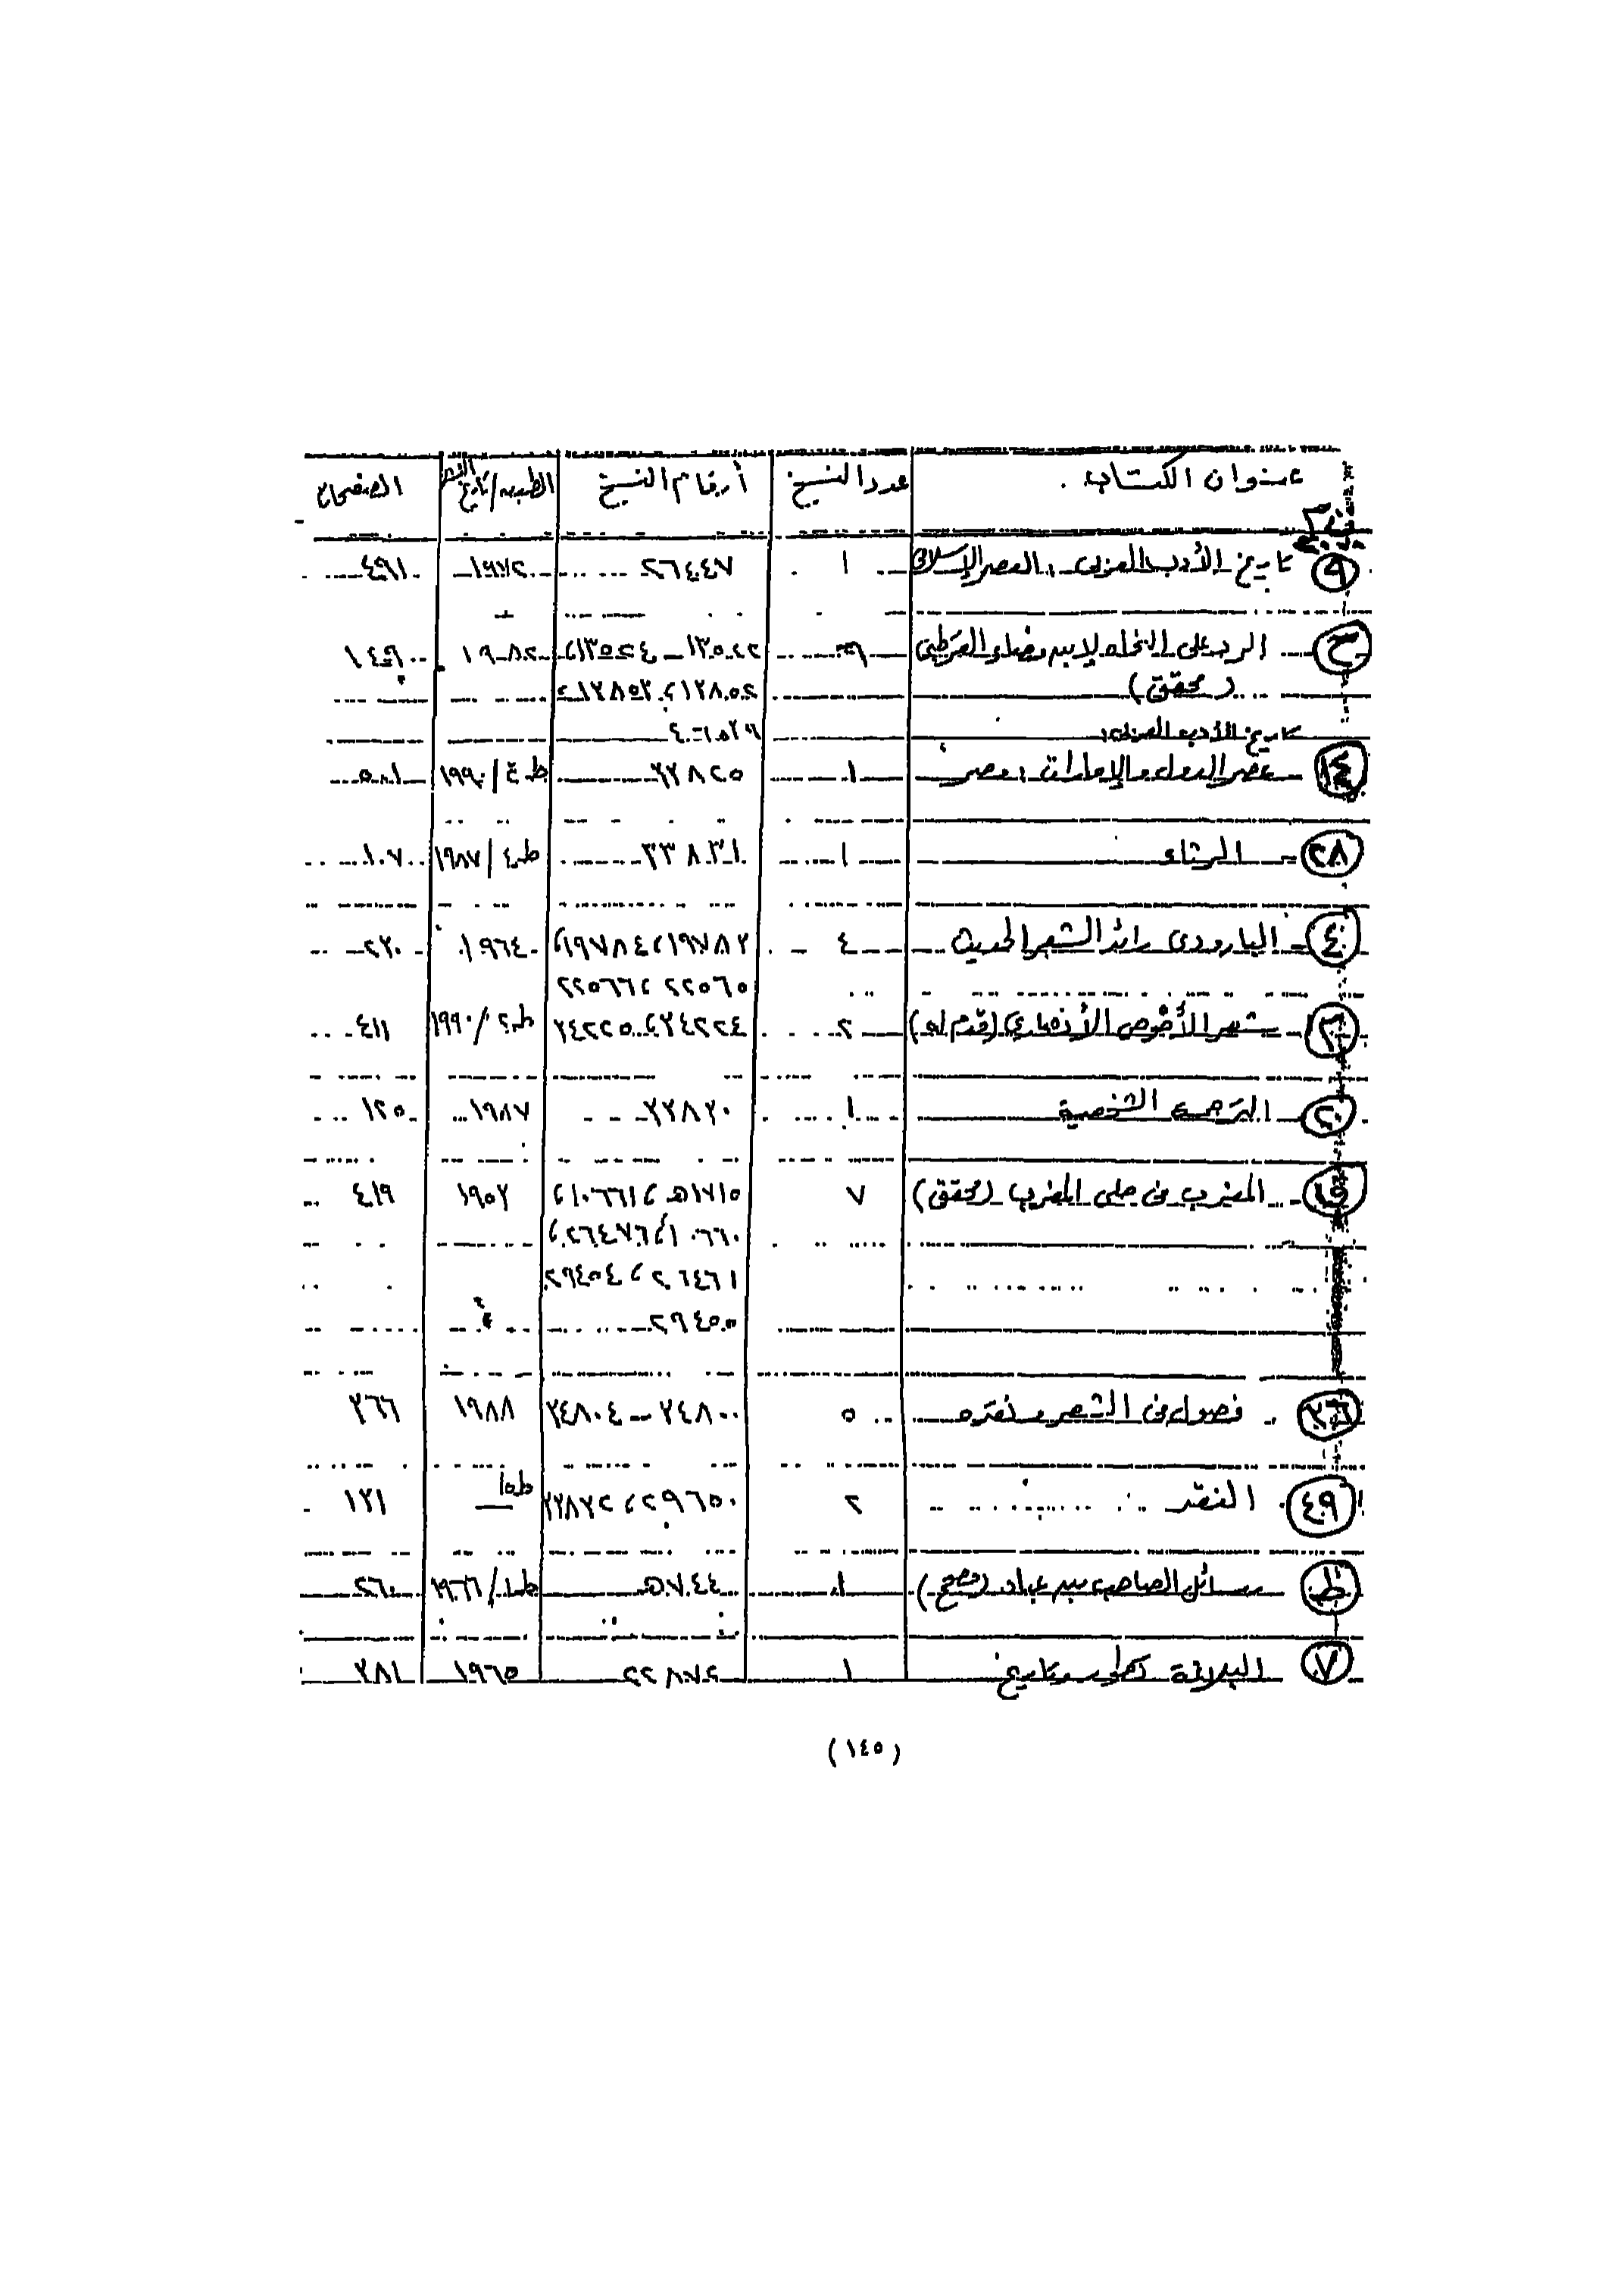 عنوان الكتاب . عدد النسخ أرقام النسخ الطبعة/تاريخ النشر الصفحات
٩ تاريخ الأدب العربى : العصر الإسلامى ١ ٢٦٤٠٤٧ ١٩٧٢ ٤٩١
ح الرد على النحاه لابن مضاء القرطبى ١٩٨٢
(محقق)
تاريخ الأدب العربى:
١٤ عصر الدول والإمارات : مصر ١ ٢٢٨٢٥ ط٤/١٩٩٠ ٥٠١
٢٨ الرثاء ١ ٣٣٨٣١ ط٤/١٩٨٧ ١٠٧
٤ البارودى رائد الشعر الحديث ٤ ١٩٧٨٢، ١٩٧٨٤، ١٩٦٤ ٢٣٠
٢٢٥٦٥، ٢٢٥٦٦
شعر الأحوص الأنصاري (قدم له) ٢ ٢٤٢٢٤، ٢٤٢٢٥ ط٢/١٩٩٠ ٤١١
٢٠ الترجمة الشخصية ١ ٢٢٨٢٠ ١٩٨٧ ١٢٥
المغرب فى حلى المغرب (محقق) ٧ ٥١٧١٥، ١٠٦٦١، ١٩٥٣ ٤١٩
١٠٦٦٠، ٢٦٤٧٦،
٢٦٤٦١، ٢٩٤٥٤،
٢٩٤٥٥
٣٦ فصول فى الشعر ونقده ٥ ٢٤٨٠٠ - ٢٤٨٠٤ ١٩٨٨ ٣٦٦
٤٩ النقد ٢ ٢٩٦٥٠، ٢٢٨٢٢ ط٥ ١٢١
ط رسائل الصاحب بن عباد (مصحح) ١ ٥٧٠٤٤ ط١/١٩٦٦ ٢٦٠
٧ البلاغة تطور وتاريخ ١ ٢٢٨٧٢ ١٩٦٥ ٣٨١
(١٤٥)